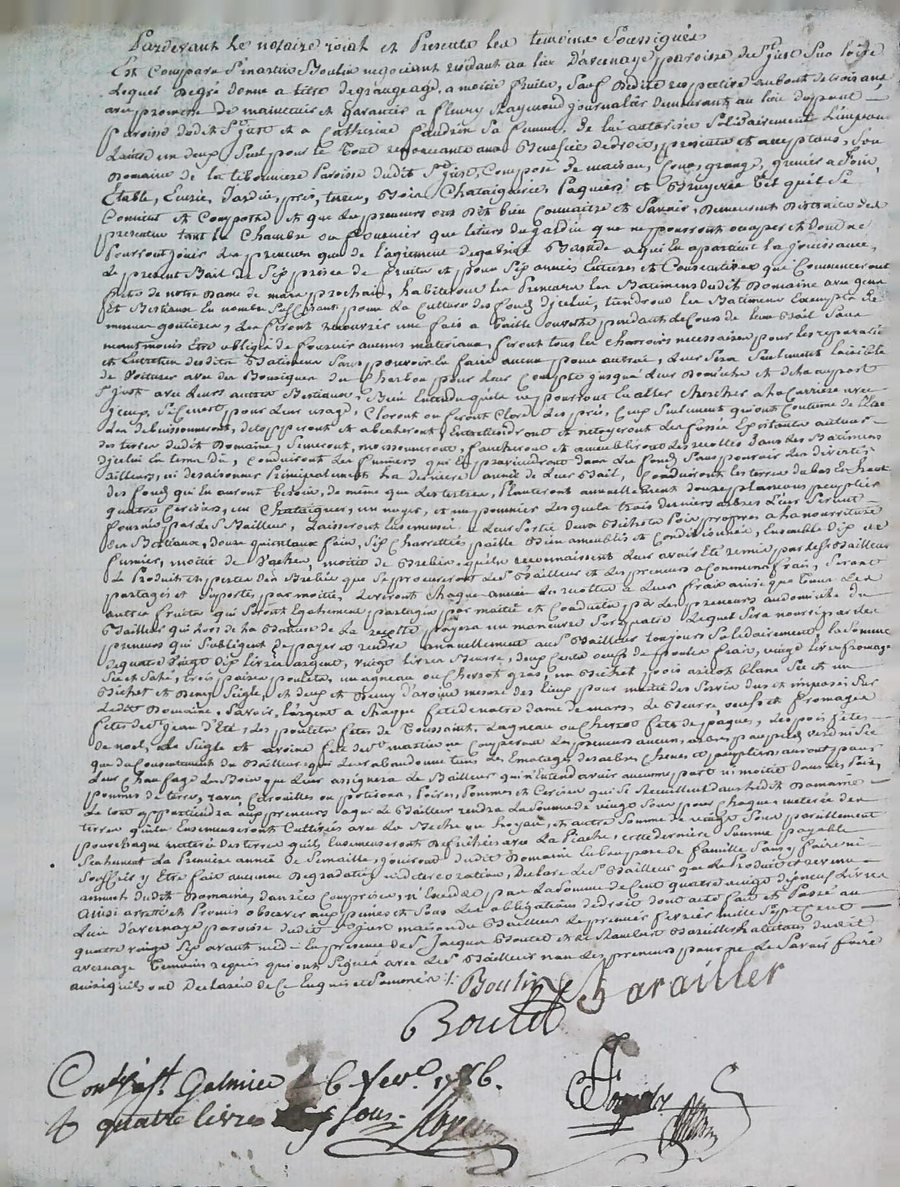 Pardevant le notaire roial et Presents les temoins Soussignés
Est Comparu Sr martin Boulin negociant residant au lieu D'avenage paroisse de St just Sur Loire
Lequel Degré donne a titre de grangeage, a moitié fruits, Sauf Dedite respective au bout de trois ans
avec promesse de maintenir et garantir a fleury Raymond journalier demeurant au lieu dupont
paroisse dudit St just et a Catherine Sa femme, de lui autorisée Solidairement L'un pour
L'autre un deux Seul pour le Tout renonceants aux Benefice de droit, presents et acceptans, Son
Domaine de la Paroisse dudit St just, Composé de maison, Cour, grange, grenier a foin
Etable, Ecurie, Jardin, pres, terres, Bois Chataigneres, Paquiers, et Bruyeres tel quil Se
Contient et Comporte et que Les preneurs ont Dit bien Connaitre et Savoir, Demeurant Distraits des
presentes tant la Chambre ou fournier que Le tiers du jardin que ne pourront occuper et dont ne
Pourront jouir Les preneurs que de l'agrement de gabriel a qui En apartient la jouissance,
Le present Bail de Six prises de fruits et pour Six années Entieres et Consecutives qui Commenceront
fete de notre Dame de mars prochain, habiteront Les Preneurs Les Batimens dudit Domaine avec gens
Et Bestiaux En nombre Suffisant pour La Culture des fonds d'jcelui, tiendront Les Batimens Exempts de
menues goutieres, Les feront recourir une fois a taille ouverte pendant Le Cours de Leur Bail Sans
neantmoins Etre obligés de fournir aucuns materiaux, feront tous les Charrois necessaires pour les reparations
et Entretien desdits Batimens Sans pouvoir En faire aucun pour autrui, Leur Sera Seulement Loisible
de Voiturer avec des Bouviques du Charbon pour Leur Compte jusqu'a
St just avec Leurs autres Bestiaux, Bien Entendu qu'ils ne pourront En aller Chercher a la Carriere avec
jceux, Si Ce n'est pour Leur usage, Cloront ou feront Clore Les prés, Ceux Seulement qui ont Coutume de l'Etre
Les debuissonneront, et abecheront, Entretiendront et netoyeront Les fossés Existants autour
des terres dudit Domaine, Semeront, moissonneront, faucheront et ameubliront Les recoltes dans Les Batimens
d'jcelui En tems du, Conduiront Les fumiers qui En proviendront dans Les fonds Sans pouvoir Les divertir
ailleurs, ni desaisonner Principalement La derniere année de Leur Bail, Conduiront Les terres du bas En haut
des fonds qui En auront besoin, de meme que Les tertres, Planteront annuellement douze plançons peuplier
quatre Cerisiers, un Chataigner, un noyer, et un pommier Lesquels trois derniers arbres Leur Seront
fournis par le Sr Bailleur, Laisseront Leur Sortie Deux Bichets Foin propres a la nourriture
des Bestiaux, douze quintaux foin, Six Charretées paille Bien ameublis et Conditionnés, Ensemble Dix de
fumier, moitié de Vaches, moitié de Brebis, qu'ils reconnaissent Leur avoir Eté remis par Le Sr Bailleur
Le Produit et perte des Bestiaux que Se procureront Les Sr Bailleur et Les preneurs a Communs frais, Seront
partagés et Suportés par moitié, Leveront Chaque année Les recoltes a Leurs frais ainsi que tous Les
autres fruits qui Seront Egalement partagés par moitié et Conduits par Les Preneurs au domicile du
Bailleur qui hors de La Batture de La recolte payera un maneuvre Lequel Sera nourri par Les
preneurs qui S'obligent de payer et rendre annuellement au Sr Bailleur toujours Solidairement, La Somme
de quatre Vingt dix Livres argent, Vingt Livres Beurre, deux Cents oeufs de poules frais, vingt Livres fromage
Sec et Salé, trois paires poulets, un agneau ou Chevrot gras, un Bichet pois aricot blanc Sec et un
Bichet et Demy Seigle, et deux et Demy d'avoine mesure des Lieux pour moitié des Servis dus et imposés Sur
Ledit Domaine, Savoir, L'argent a Chaque fete de notre Dame de mars, Le Beurre, oeufs et fromages
fetes de St Jean d'Eté, Les poulets fetes de Toussaint, L'agneau ou Chevrot fete de paques, Les pois fetes
de noel, Le Seigle et avoine fete de St martin, ne Couperont Les preneurs aucun arbres par pied verd ni Sec
que du Consentement du Bailleur, qui Leur abandonne tous Les Emotages des arbres Chenes et peupliers auront pour
Leur Chaufage Les Bois que Leur assignera Le Bailleur qui n'Entend avoir aucune part ni moitié dans Les Foins,
pommes de terre, raves, Citrouilles ou potirons, Poires, Pommes et Cerises qui Se recueillent dans ledit Domaine
Le tout apartiendra aux preneurs Le Bailleur rendra La Somme de vingt Sous pour Chaque meterée de
terre qu'ils Ensemenceront Cultivées avec La Beche ou hoyau, et autre Somme de vingt Sous pareillement
pour chaque meterée des terres qu'ils Ensemenceront avec La Pioche, cette derniere Somme payable
Seulement La Premiere année de Semaille, jouiront dudit Domaine En bon pere de famille Sans y faire ni
Souffrir y Etre fait aucunes Degradation ni deterioration, Declare Le Sr Bailleur que Le Produit et revenu
annuel dudit Domaine, danrées Comprises, n'Excede pas La Somme de Cent quatre vingt dix neuf Livres
Ainsi arreté et Promis observer aux peines et Sous Les obligations de droit dont acte fait et Passé au
Lieu d'avernage paroisse dudit St just maison du Bailleur Le premier fevrier mille Sept Cent
quatre vingt Six avant midi En presence de Sr Jacques Boulet et de Rambert Barailler habitans dudit
avernage Temoins requis qui ont Signés avec Le Sr Bailleur non Les preneurs pour ne Le Savoir faire
ainsi qu'ils ont Declarés de Ce Enquis et Sommés ./.
Boulin Barailler
Boulet
Conlé à St. Galmier Le 6 fevr. 1786.
R quatre livres Sous